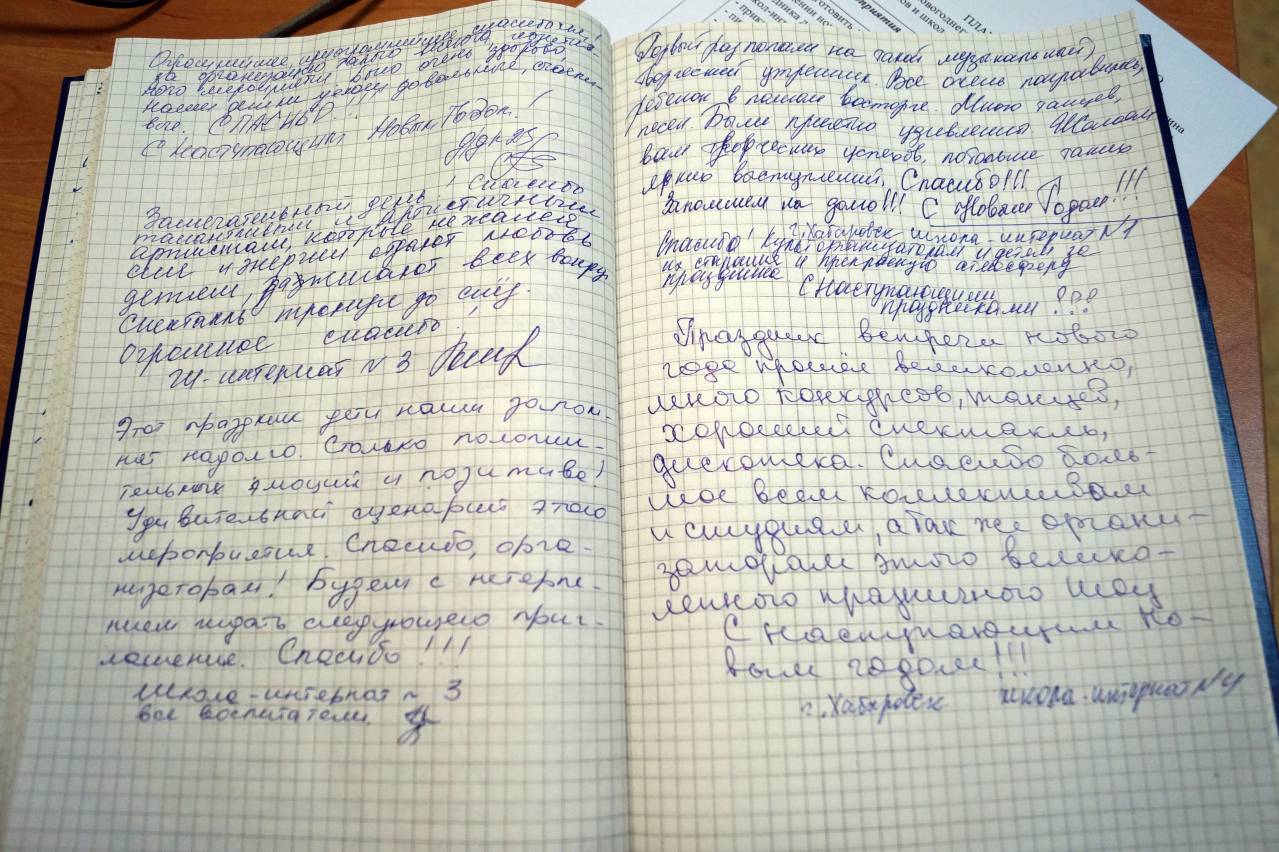 Огромнейшее, преогромнейшее спасибочки!
за организацию такого
ного мероприятия было очень здорово,
наши детки уехали довольные, счастли-
вые. СПАСИБО!!!
С Наступающим Новым Годом!
Замечательный день! Спасибо
талантливым и артистичными
артистам, которые не жалея
сил и энергии отдают любовь
детям, зажигают всех вокруг
Спектакль тронул до слёз.
Огромное спасибо!
Ш-интернат № 3
Этот праздник дети наши запом-
нят надолго. Столько положи-
тельных эмоций и позитива!
Удивительный сценарий этого
мероприятия. Спасибо, орга-
низаторам! Будем с нетерпе-
нием ждать следующего приг-
лашение. Спасибо!!!
Школа-интернат № 3
все воспитатели
Первый раз попали на такой музыкальный,
творческий утренник. Все очень понравилось,
ребенок в полном восторге. Много танцев,
песен. Были приятно удивленны. Желаем
вам творческих успехов, побольше таких
ярких выступлений, Спасибо!!!
Запомним на долго!!! С Новым Годом!!!
г. Хабаровск школа-интернат №1
Спасибо! Культорганизаторам и детям за
их старания и прекрасную атмосферу
праздника
С Наступающими
праздниками!!!
Праздник встречи нового
года прошёл великолепно,
много конкурсов, танцев,
хороший спектакль,
дискотека. Спасибо боль-
шое всем коллективам
и студиям, а так же органи-
заторам этого велико-
лепного празничного шоу
С наступающим Но-
вым годом!!!
г. Хабаровск школа-интернат №4
ПЛА